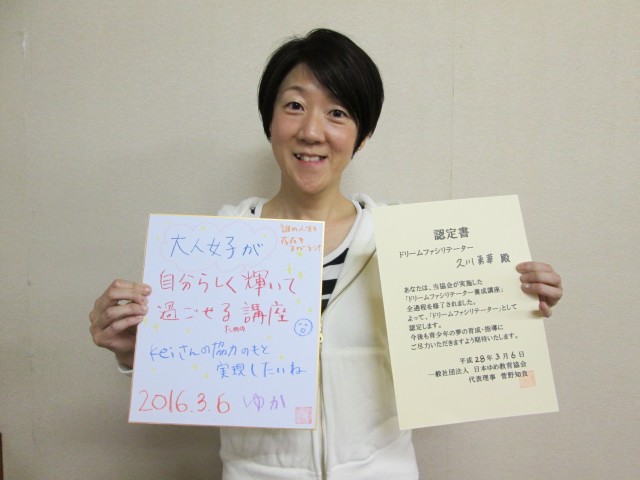 大人女子が
自分らしく輝いて
過ごせる講座
ための
Keiさんの協力のもと
実現したいね
2016.3.6 ゆか
認定書
ドリームファシリテーター
殿
あなたは、当協会が実施した
「ドリームファシリテーター養成講座」
全過程を修了されました。
よって、「ドリームファシリテーター」として
認定します。
今後も青少年の夢の育成・指導に
ご尽力いただきますよう期待いたします。
平成28年3月6日
一般社団法人 日本ゆめ教育協会
代表理事 菅野知良